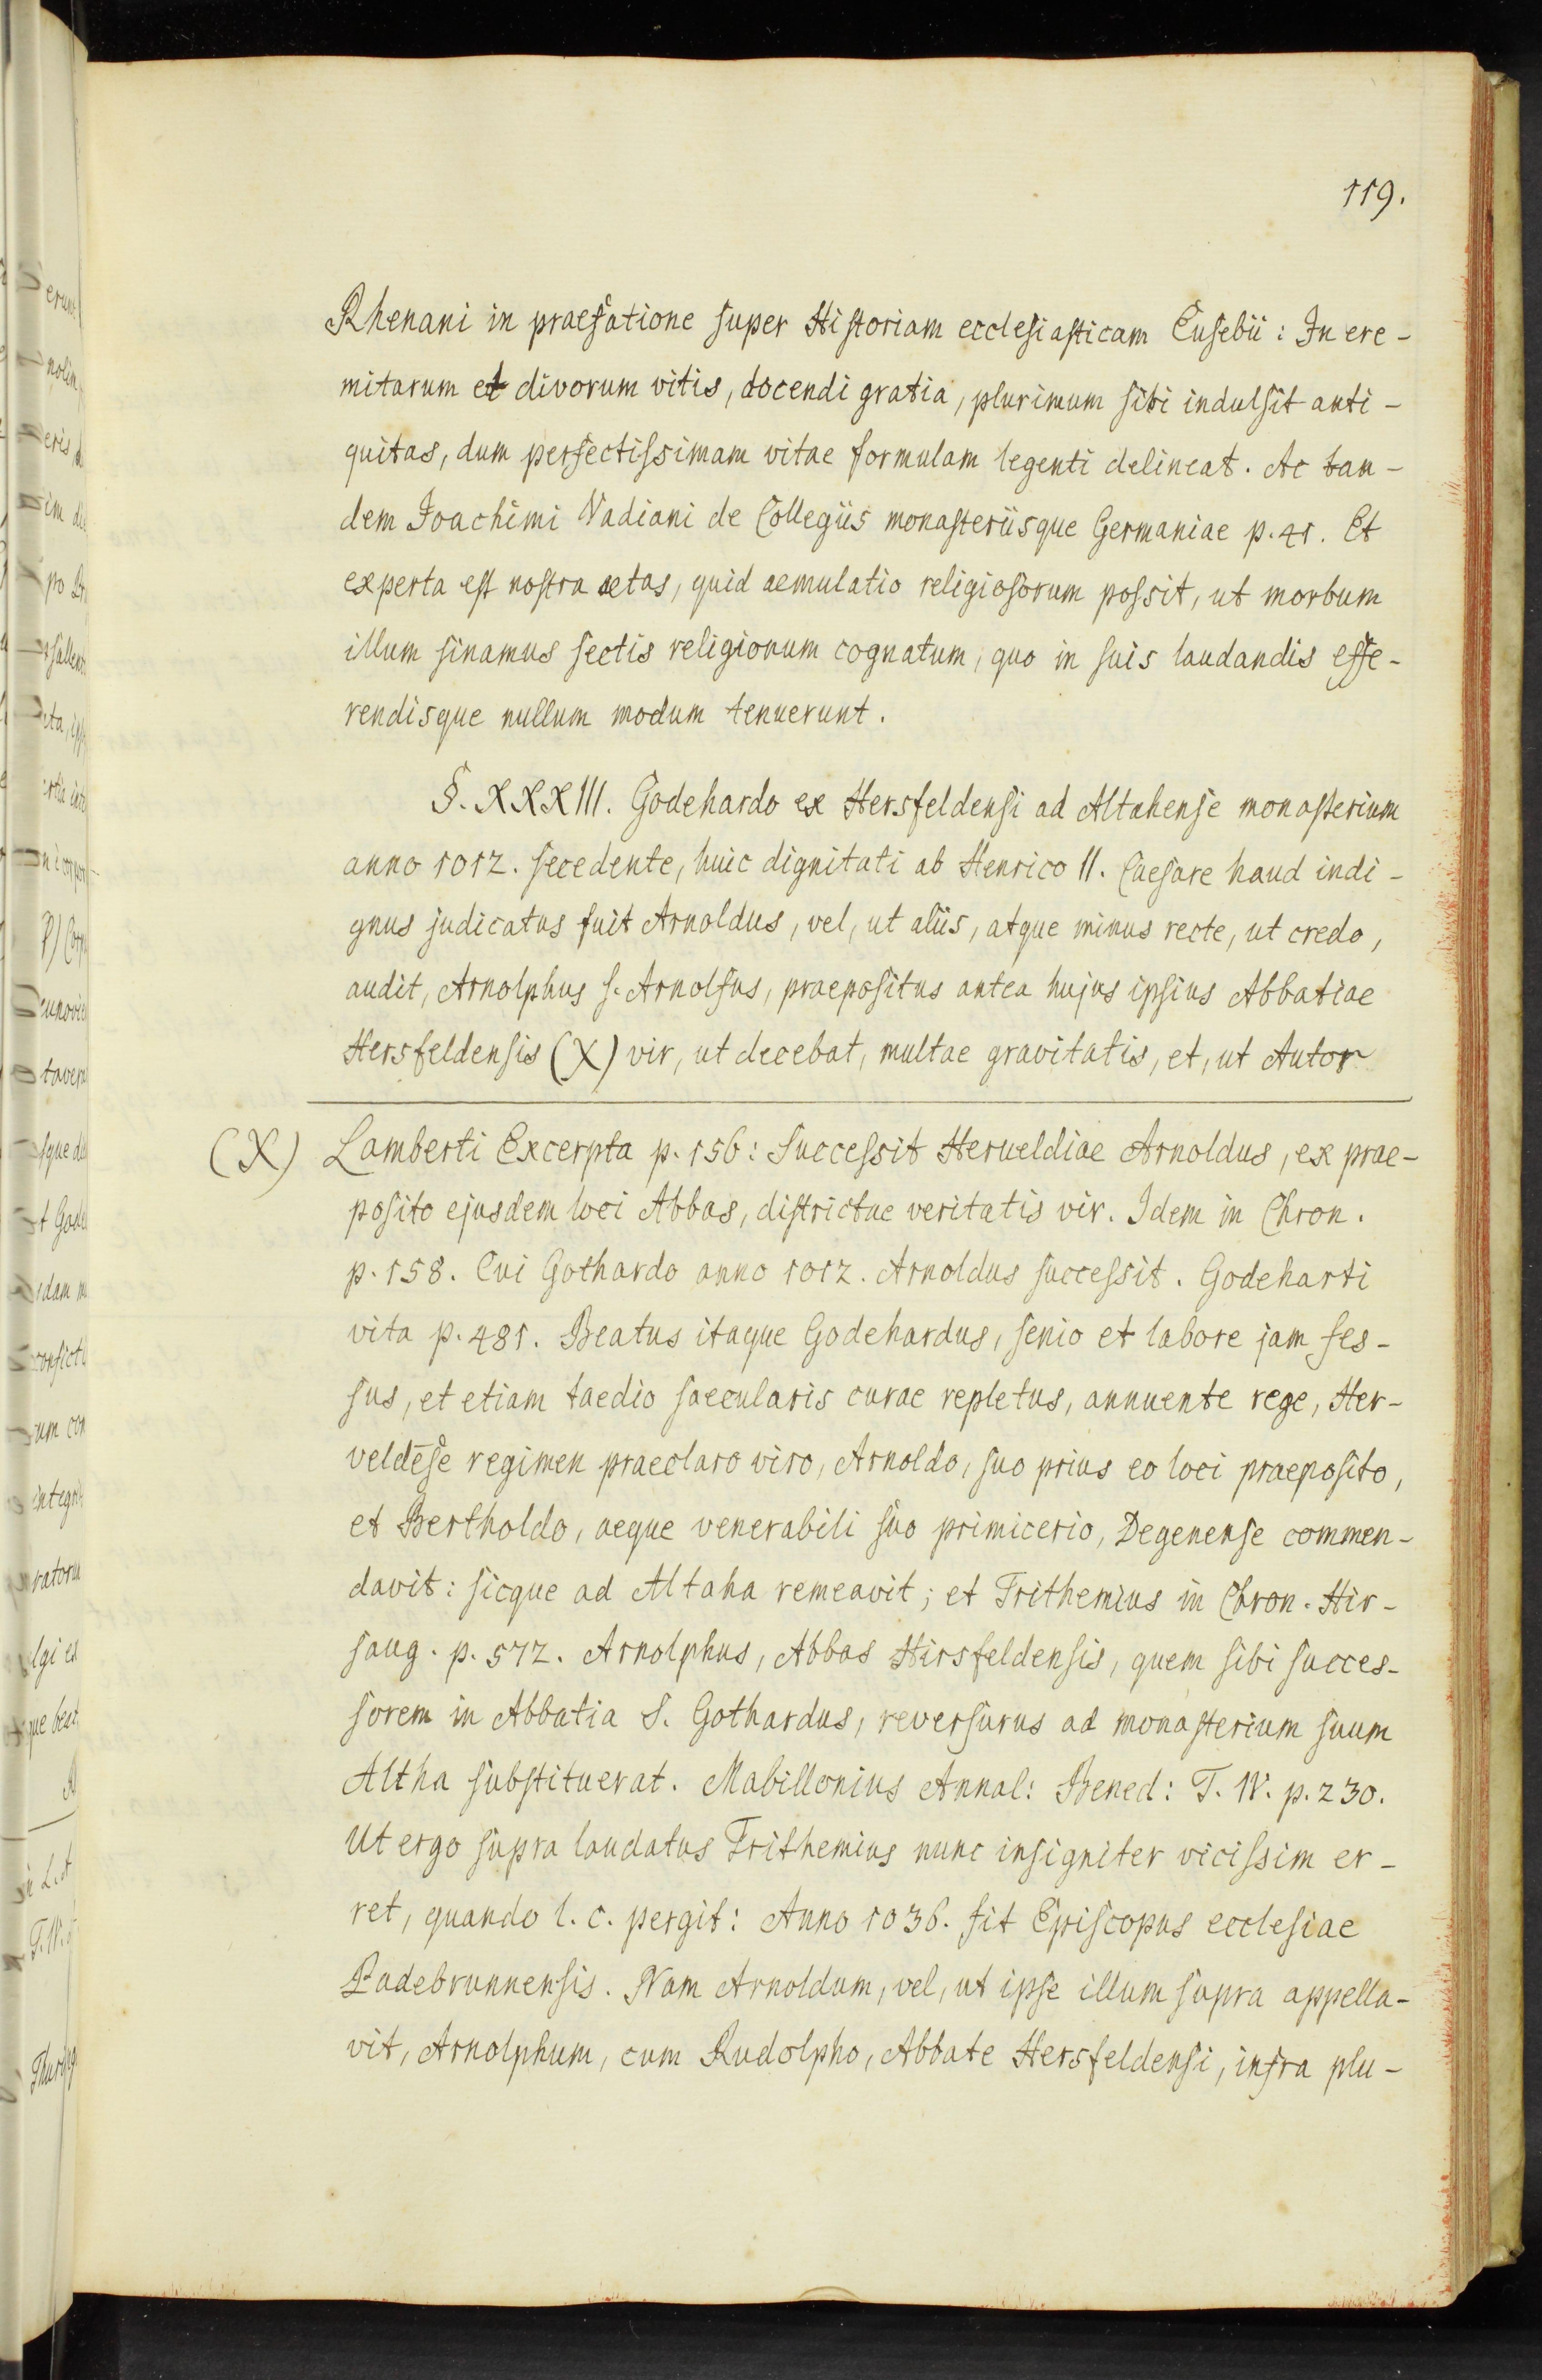 119.
Rhenani in praefatione super Historiam ecclesiasticam Eusebii : In ere-
mitarum et divorum vitis, docendi gratia, plurimum sibi indulsit anti-
quitas, dum perfectissimam vitae formulam legenti delineat. Ac tan-
dem Joachimi Vadiani de Collegiis monasteriisque Germaniae p. 41. Et
experta est nostra aetas, quid aemulatio religiosorum possit, ut morbum
illum sinamus sectis religionum cognatum, quo in suis laudandis effe-
rendisque nullum modum tenuerunt.
§. XXXIII. Godehardo ex Hersfeldensi ad Altahense monasterium
anno 1012. secedente, huic dignitati ab Henrico II. Caesare haud indi-
gnus judicatus fuit Arnoldus, vel, ut aliis, atque minus recte, ut credo,
audit, Arnolphus s. Arnolfus, praepositus antea hujus ipsius Abbatiae
Hersfeldensis (X) vir, ut decebat, multae gravitatis, et, ut Autor
(X) Lamberti Excerpta p. 156: Successit Herueldiae Arnoldus, ex prae-
posito ejusdem loci Abbas, districtae veritatis vir. Idem in Chron.
p. 158. Cui Gothardo anno 1012. Arnoldus successit. Godeharti
vita p. 481. Beatus itaque Godehardus, senio et labore jam fes-
sus, et etiam taedio saecularis curae repletus, annuente rege, Her-
veldēse regimen praeclaro viro, Arnoldo, suo prius eo loci praeposito,
et Bertholdo, aeque venerabili suo primicerio, Degenense commen-
davit: sicque ad Altaha remeavit; et Trithemius in Chron. Hir-
saug. p. 572. Arnolphus, Abbas Hirsfeldensis, quem sibi succes-
sorem in Abbatia S. Gothardus, reversurus ad monasterium suum
Altha substituerat. Mabillonius Annal: Bened: T. IV. p. 230.
Ut ergo supra laudatus Trithemius nunc insigniter vicissim er-
ret, quando l. c. pergit: Anno 1036. fit Episcopus ecclesiae
Padebrunnensis. Nam Arnoldum, vel, ut ipse illum supra appella-
vit, Arnolphum, cum Rudolpho, Abbate Hersfeldensi, infra plu-